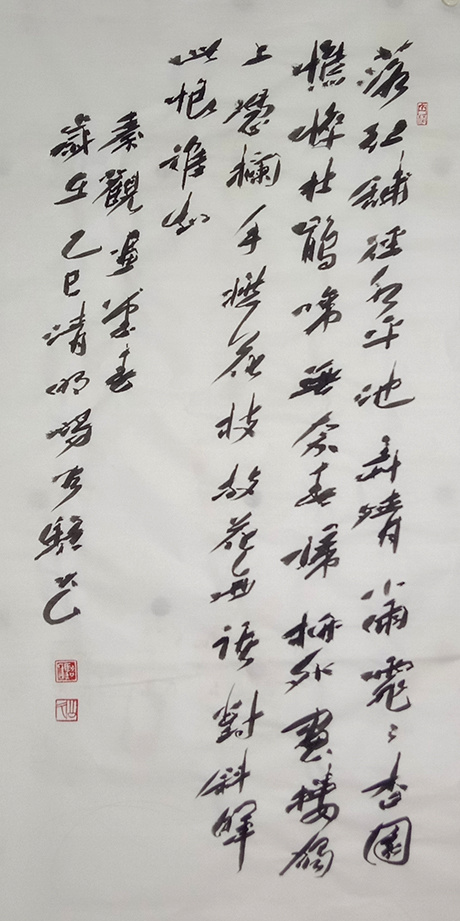 落紅鋪徑水平池弄晴小雨霏〻杏園
憔悴杜鵑啼無奈春歸柳外畫樓獨
上憑欄手撚花枝放花無語對斜暉
此恨誰知
秦觀畫堂春
歲在乙巳清明